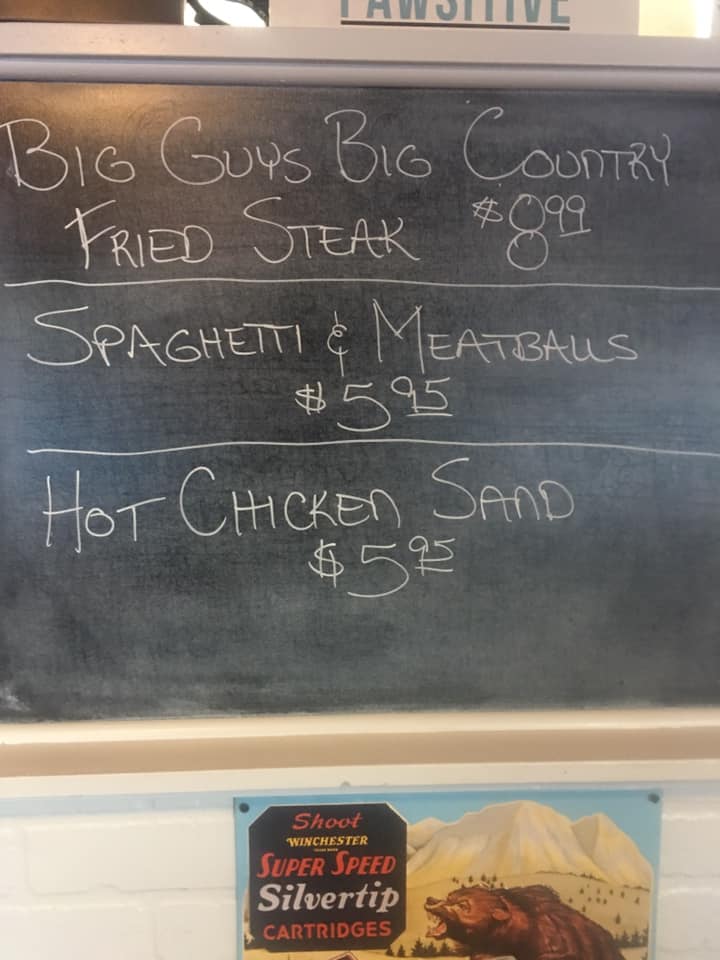 PAWSITIVE
BIG GUYS BIG COUNTRY
FRIED STEAK $8.99
SPAGHETTI & MEATBALLS
$5.95
HOT CHICKEN SAND
$5.95
Shoot
WINCHESTER
SUPER SPEED
Silvertip
CARTRIDGES